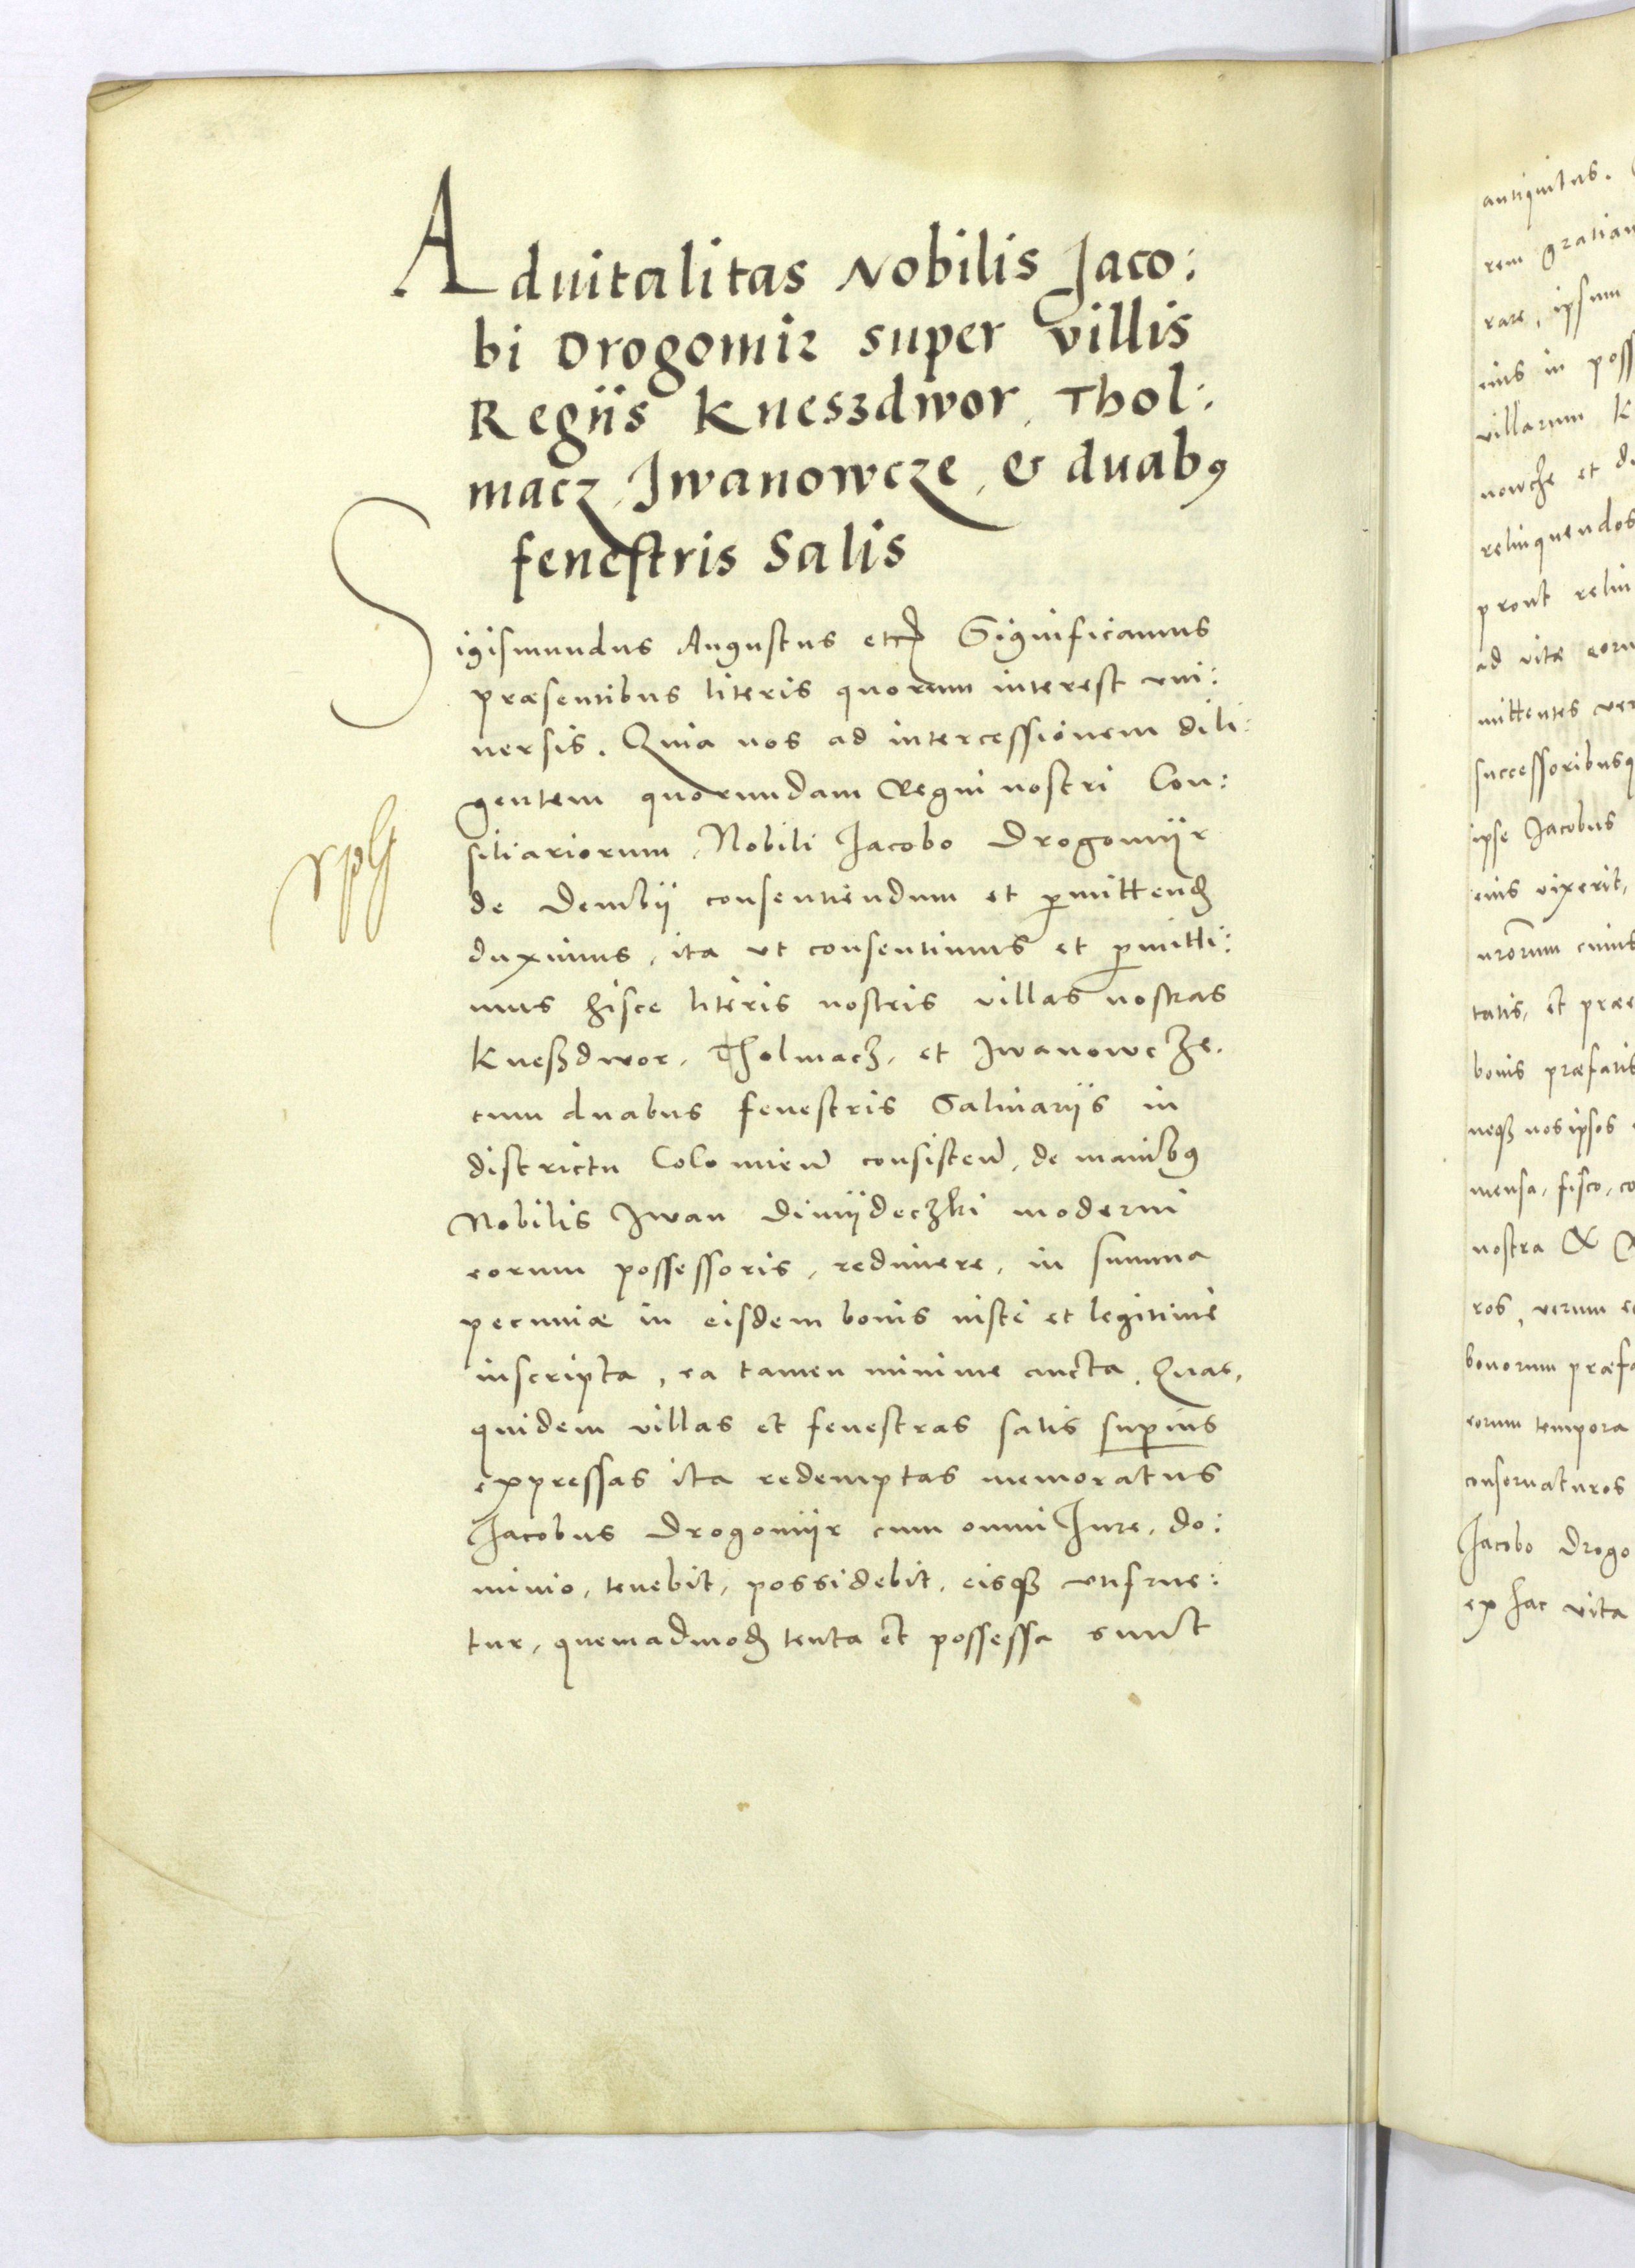 Aduitalitas Nobilis Jaco:
bi Drogomir super villis
Regiis Kneszdwor, Thol:
macz, Jwanowcze, & duabꝰ
fenestris Salis
Sigismundus Augustus etc̃ Significamus
præsentibus literis quorum interest vni:
uersis. Quia nos ad intercessionem dili:
gentem quorundam Regni nostri Con:
siliariorum, Nobili Jacobo Drogomiir
de Dembii consentiendum et ꝑmittend̃
duximus, ita vt consentimus et ꝑmitti:
mus hisce literis nostris villas nostras
Kneszdwor, Tholmacz, et Jwanowcze,
cum duabus fenestris Salinariis in
districtu Colomien̄ consisten̄, de manibꝰ
Nobilis Jwan Dimiideczki moderni
eorum possessoris, redimere, in summa
pecuniæ in eisdem bonis iuste et legitime
inscripta, ea tamen minime aucta, Quas,
quidem villas et fenestras salis suꝑius
expressas ita redemptas memoratus
Jacobus Drogomiir cum omni Jure, do:
minio, tenebit, possidebit, eisqꝫ vtifrue:
tur, quemadmod̃ tenta et possessa sunt
antiquitus.
rem gratiam
rare, ipsum
eius in poss
villarum K
nowcze et d
relinquendos
prout relin
ad vitæ eoru
mittentes ver
successoribusq
ipse Jacobus
eius vixerit,
nrōrum cuius
tatis, et præe
bonis præfatis
neqꝫ nos ipsos
mensa, fisco, co
nostra
ros, verum e
bonorum præfa
eorum tempora
conseruaturos
Jacobo Drogo
ex hac vita